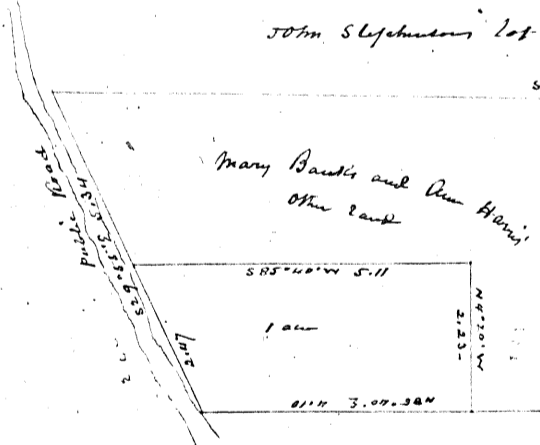 John Stephenson's lot
S
Mary Banks and Ann Harris'
Other land
Public Road
S29°55'E 5.34
S85°40'W 5.11
1 acre
N4°20'W
2.23
2.47
N85°40'E 4.10